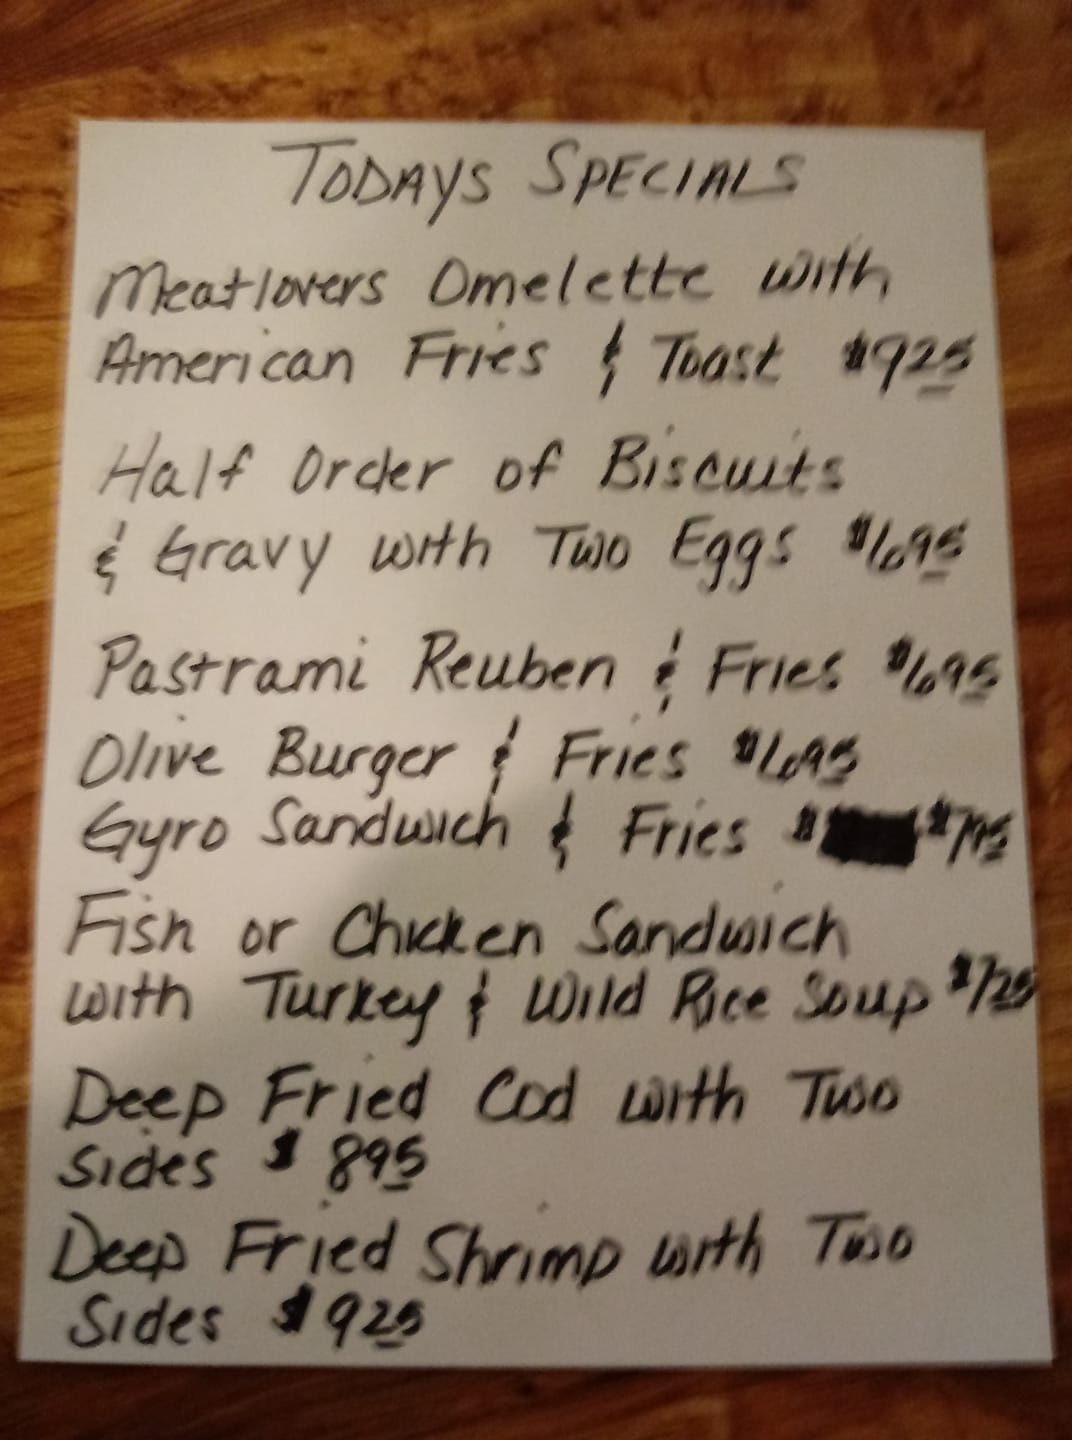 TODAYS SPECIALS
Meatlovers Omelette with
American Fries & Toast $925
Half Order of Biscuits
& Gravy with Two Eggs $695
Pastrami Reuben & Fries $695
Olive Burger & Fries $695
Gyro Sandwich & Fries $ $795
Fish or Chicken Sandwich
with Turkey & Wild Rice Soup $725
Deep Fried Cod with Two
Sides $ 895
Deep Fried Shrimp with Two
Sides $925